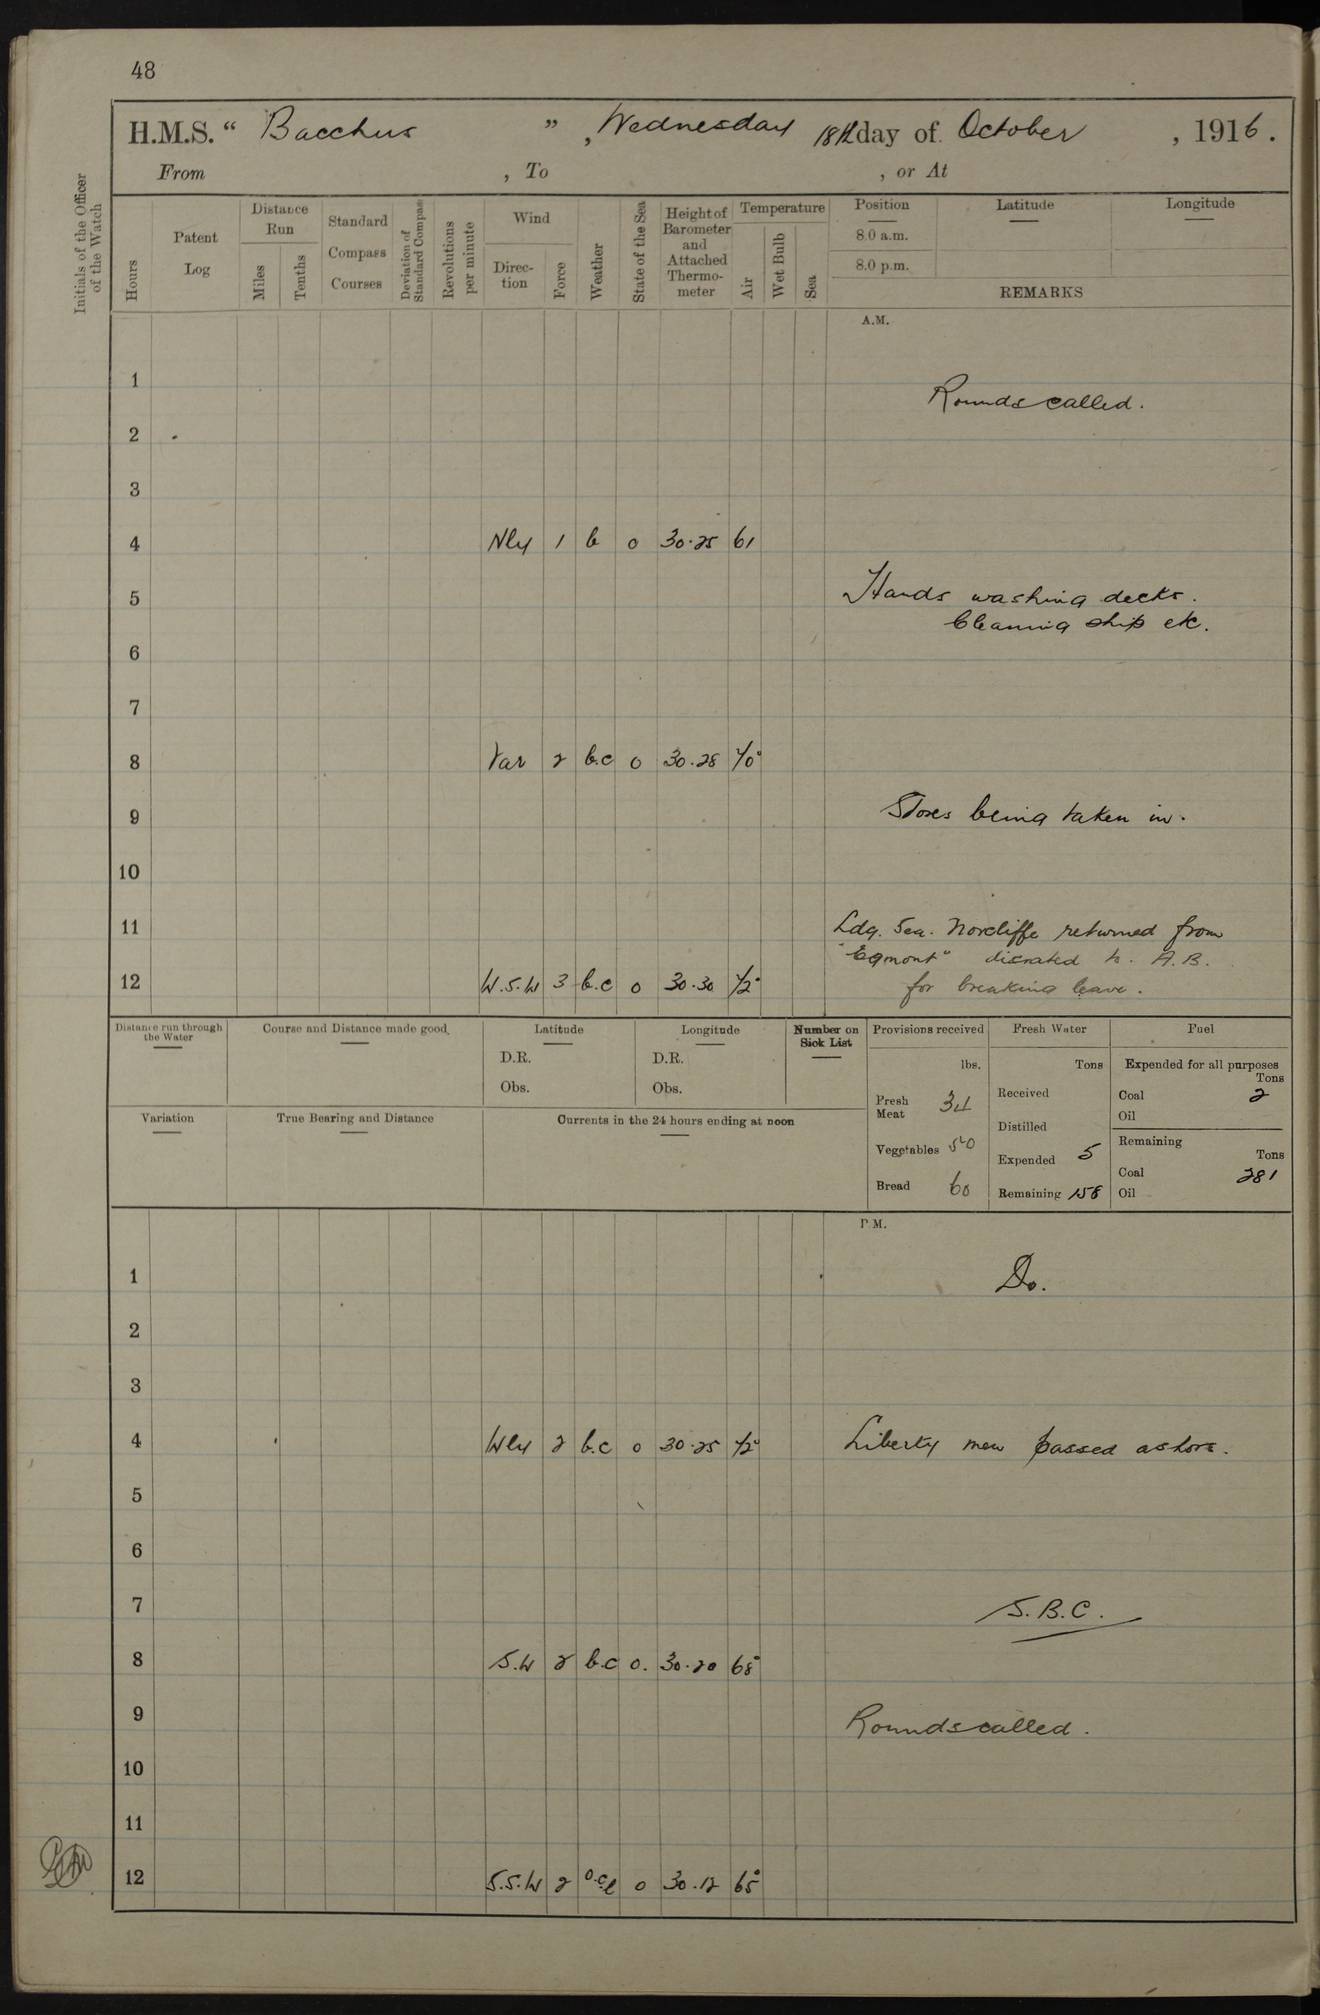 48
H.M.S. “ Bacchus ” , Wednesday 18th day of October , 1916.
From , To , or At
Initials of the Officer of the Watch
Hours
Patent Log
Distance Run
Miles
Tenths
Standard Compass Courses
Deviation of Standard Compass
Revolutions per minute
Wind
Direc-tion
Force
Weather
State of the Sea
Height of Barometer and Attached Thermo-meter
Temperature
Air
Wet Bulb
Sea
Position Latitude Longitude
8.0 a.m.
8.0 p.m.
REMARKS
A.M.
1
Rounds called.
2
3
4 Nly 1 b 0 30.25 61
5 Hands washing decks.
Cleaning ship etc.
6
7
8 Var 2 b.c 0 30.28 70°
9 Stores being taken in.
10
11 Ldg. Sea. Norcliffe returned from
"Egmont" disrated to A.B.
12 W.S.W 3 b.c 0 30.30 72° for breaking leave.
Distance run through the Water
Course and Distance made good
Latitude
D.R.
Obs.
Longitude
D.R.
Obs.
Number on Sick List
Provisions received
lbs.
Fresh Meat 34
Vegetables 50
Bread 60
Fresh Water
Tons
Received
Distilled
Expended 5
Remaining 158
Fuel
Expended for all purposes
Tons
Coal 2
Oil
Remaining
Tons
Coal 281
Oil
Variation
True Bearing and Distance
Currents in the 24 hours ending at noon
P.M.
1 Do.
2
3
4 Wly 2 b.c 0 30.25 72° Liberty men passed ashore.
5
6
7 S.B.C.
8 S.W 2 b.c 0. 30.20 68°
9 Rounds called.
10
11
12 S.S.W 2 o.c.l 0 30.12 65°